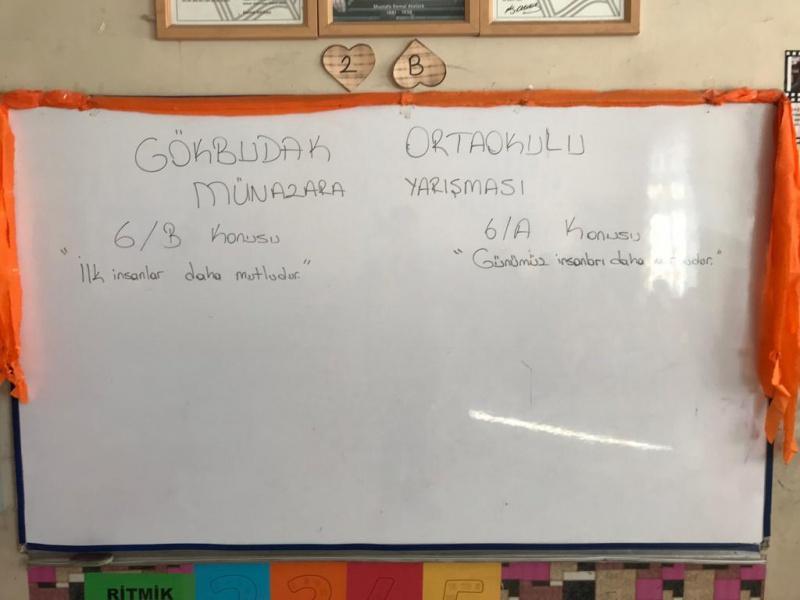 Mustafa Kemal Atatürk
1881 - 1938
2 B
GÖKBUDAK ORTAOKULU
MÜNAZARA YARIŞMASI
6/B Konusu
"İlk insanlar daha mutludur."
6/A Konusu
"Günümüz insanları daha mutludur."
RİTMİK
2 3 4 5